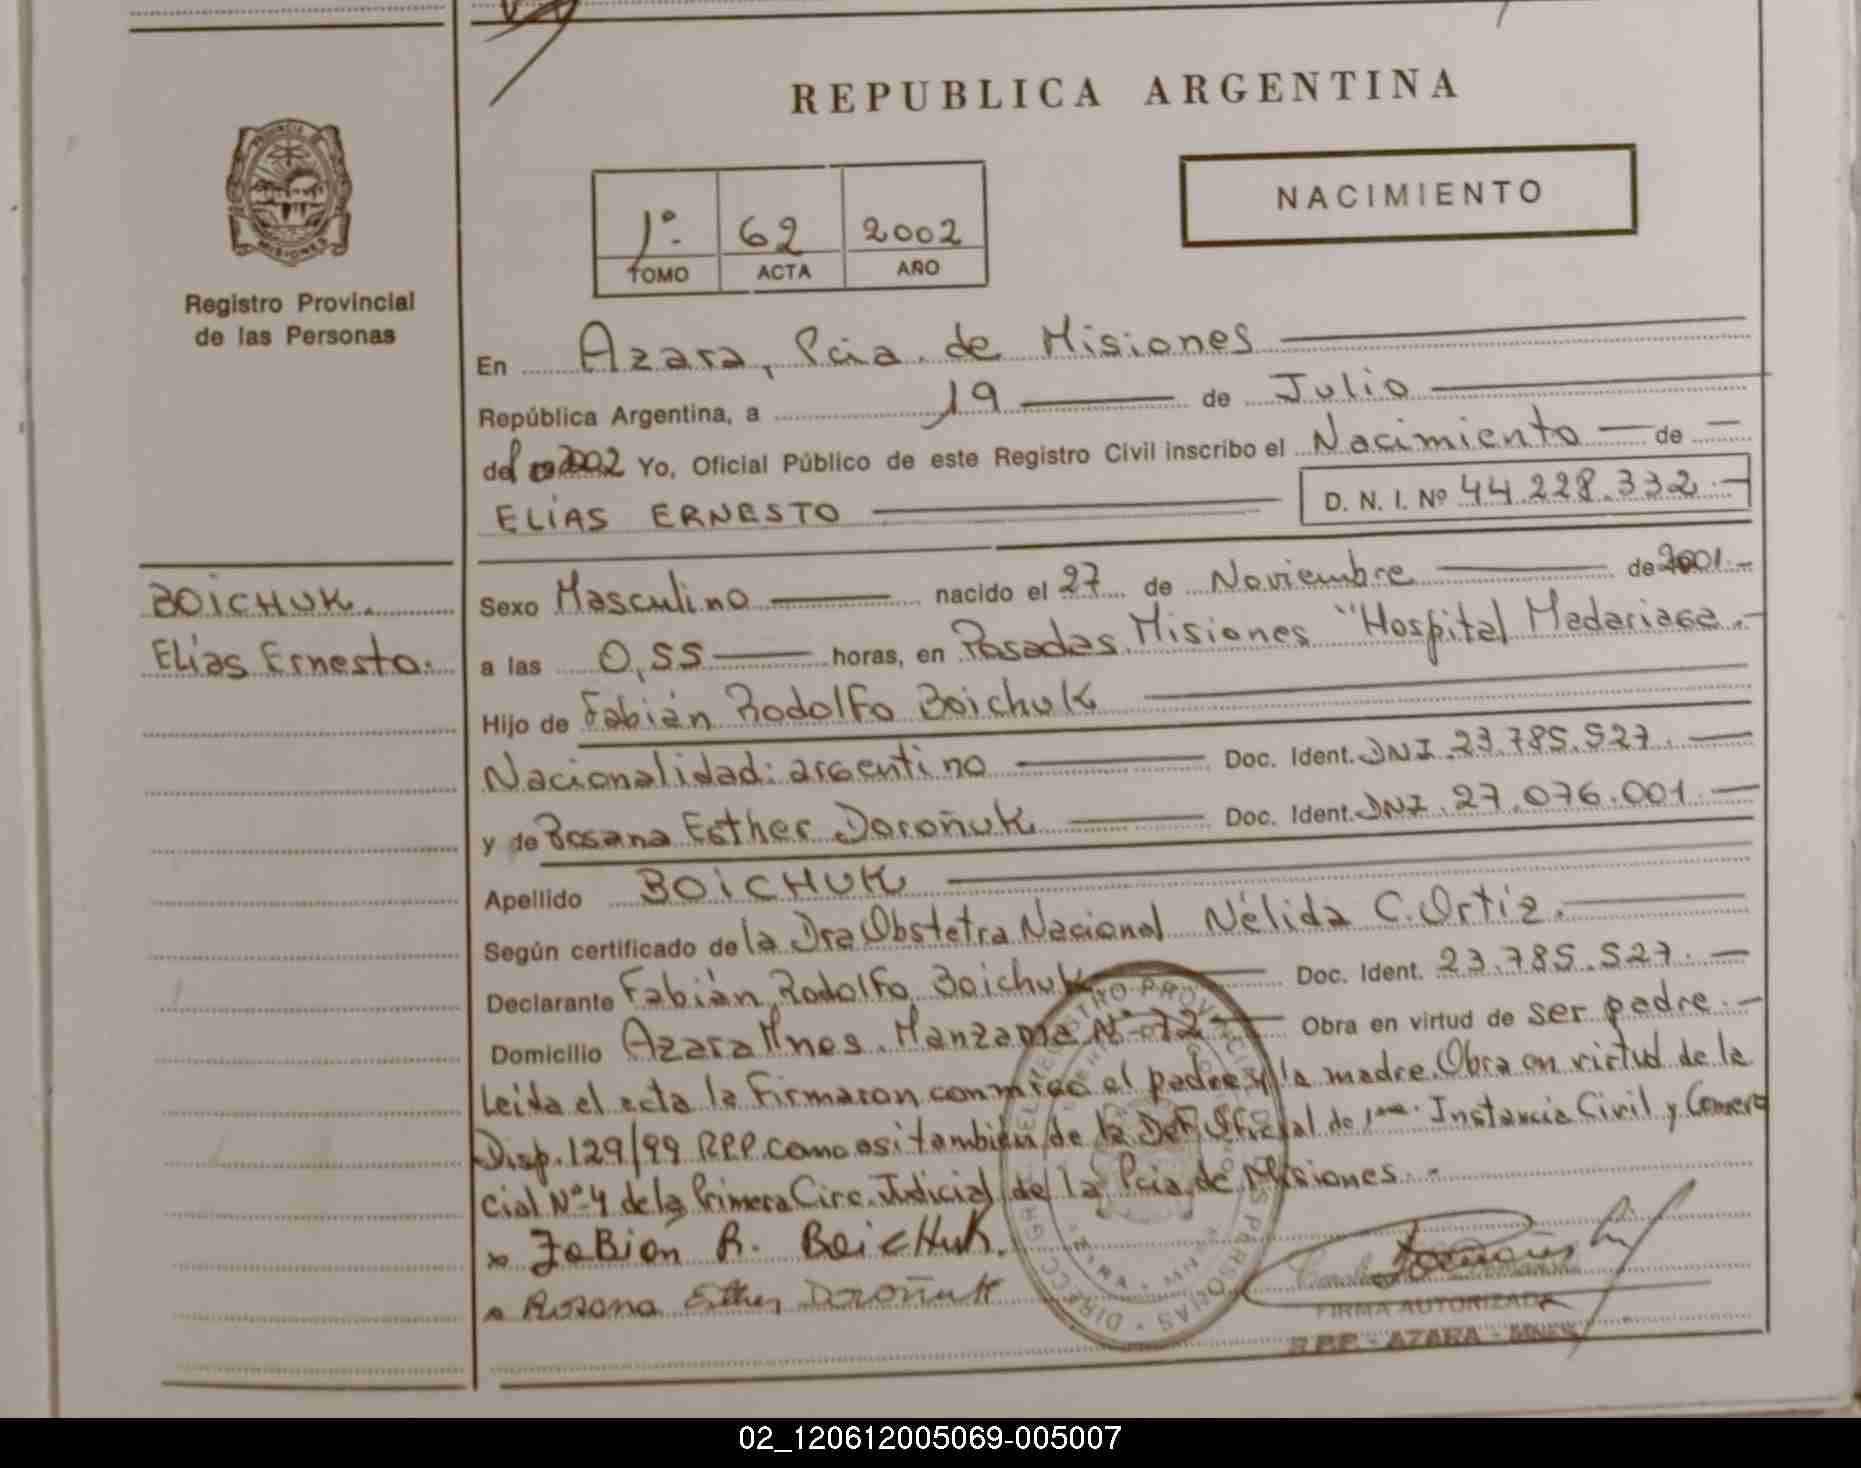 REPUBLICA ARGENTINA
PROVINCIA DE MISIONES
Registro Provincial
de las Personas
1º- 62 2002
TOMO ACTA AÑO
NACIMIENTO
En Azara, Pcia. de Misiones
República Argentina, a 19 de Julio
del 2002 Yo, Oficial Público de este Registro Civil inscribo el Nacimiento de
ELÍAS ERNESTO D. N. I. Nº 44.228.332.-
BOICHUK.
Elías Ernesto.
Sexo Masculino nacido el 27 de Noviembre de 2001.-
a las 0,55 horas, en Posadas Misiones "Hospital Madariaga.-
Hijo de Fabián Rodolfo Boichuk
Nacionalidad: argentino Doc. Ident. DNI.23.785.527.-
y de Rosana Esther Doroñuk Doc. Ident. DNI.27.076.001.-
Apellido BOICHUK
Según certificado de la Dra Obstetra Nacional Nélida C. Ortiz.
Declarante Fabián Rodolfo Boichuk Doc. Ident. 23.785.527.-
Domicilio Azara Mnes. Manzana Nº 72 Obra en virtud de ser padre.-
Leída el acta la firmaron conmigo el padre y la madre. Obra en virtud de la
Disp. 129/99 RPP. como asi también de la Def. Oficial de 1era. Instancia Civil y Comer
cial Nº 4 de la Primera Circ. Judicial de la Pcia. de Misiones.-
x Fabian R. Boichuk.
x Rosana Esther Doroñuk
FIRMA AUTORIZADA
R.P.P. - AZARA - MNES
02_120612005069-005007